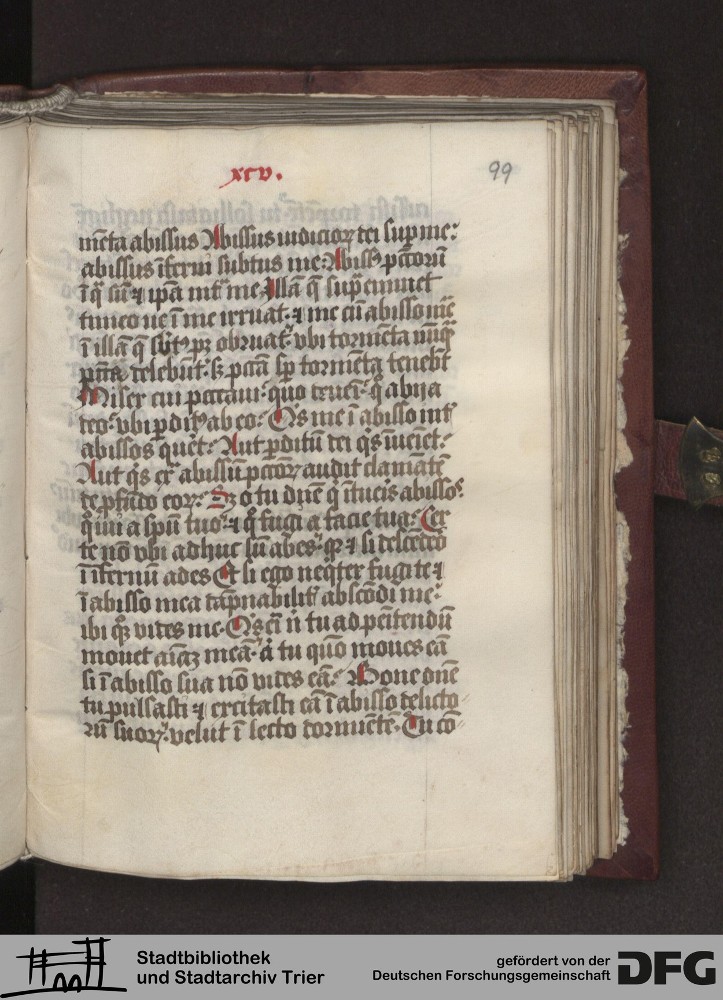 xcv.
99
mēta abissus Abissus iudicioꝝ dei sup me:
abissus īferni subtus me: Abissꝰ pctorū
ī qͥ sū ⁊ ipa intᷓ me Illā q̄ suꝑ eminet
timeo ne ī me irruat. ⁊ me cū abisso mē
ī illā q̄ obruat. vbi tormēta nūqᷓ
celebūt. sꝫ sꝑ tormēta tenebt
Miser cui peccaui. quo deueī. qͥ abija
deo. vbi ꝑditꝰ ab eo. Qͥs me ī abisso intᷓ
abissos queret: Aut ꝑditū dei qͥs iueīet:
Aut qͥs ex abissū pctoꝝ audit clamātē
te ꝓfūdo cor. Sꝫ o tu dn̄e qͥ ītueis abissos:
qͦ iui a spū tuo. ⁊ qͦ fugi a facie tua: Cer
te nō vbi adhuc sū abes. qꝛ ⁊ si descēdeo
ī īfernū ades Et si ego neqͥter fugi te ⁊
ī abisso mea dāpnabilitᷓ abscōdi me:
ibi qͦꝫ vides me. Qͥs eī n̄ tu ad penitendū
mouet aīaꝫ meā. a tu quō moues eā
si ī abisso sua nō vides eā: Bone dn̄e
tu pulsasti ⁊ excitasti eā ī abisso delicto
rū suoꝝ. velut ī lecto dormiēte. Tu cō
Stadtbibliothek
und Stadtarchiv Trier
gefördert von der
Deutschen Forschungsgemeinschaft
DFG